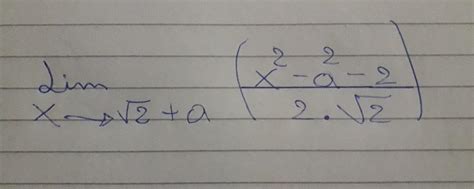 Lim x→√2+a ( (x² - a² - 2) / (2 . √2) )